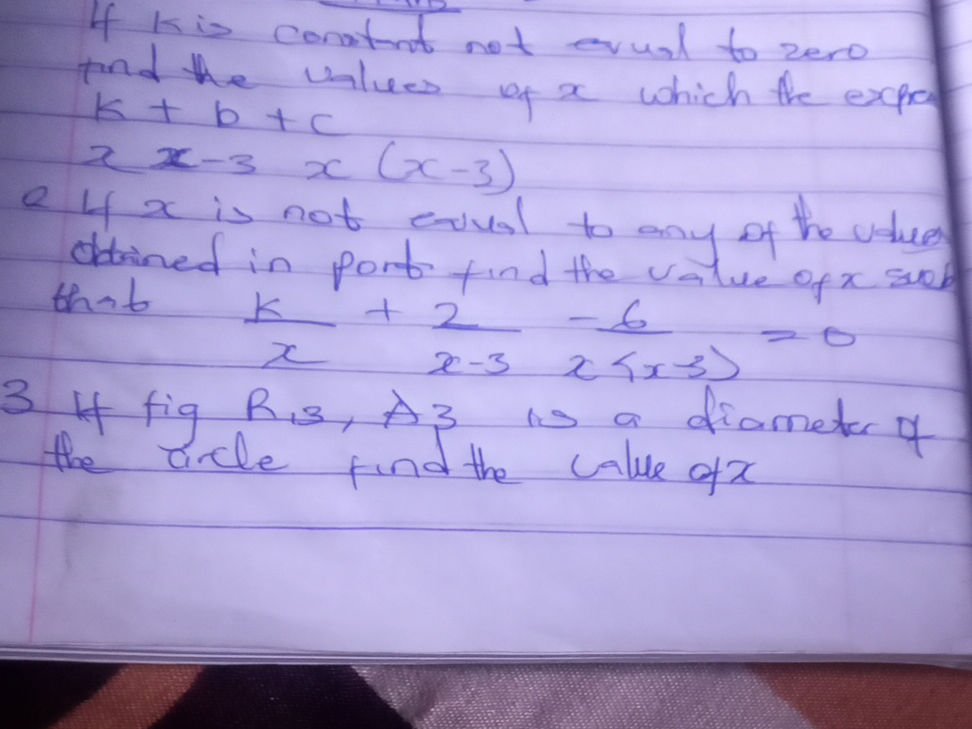 If k is constant not equal to zero
find the values of x which the expre
k + b + c
x x-3 x (x-3)
2 If x is not equal to any of the values
obtained in part find the value of x such
that k + 2 - 6 = 0
x x-3 x (x-3)
3 If fig R13, A3 is a diameter of
the circle find the value of x